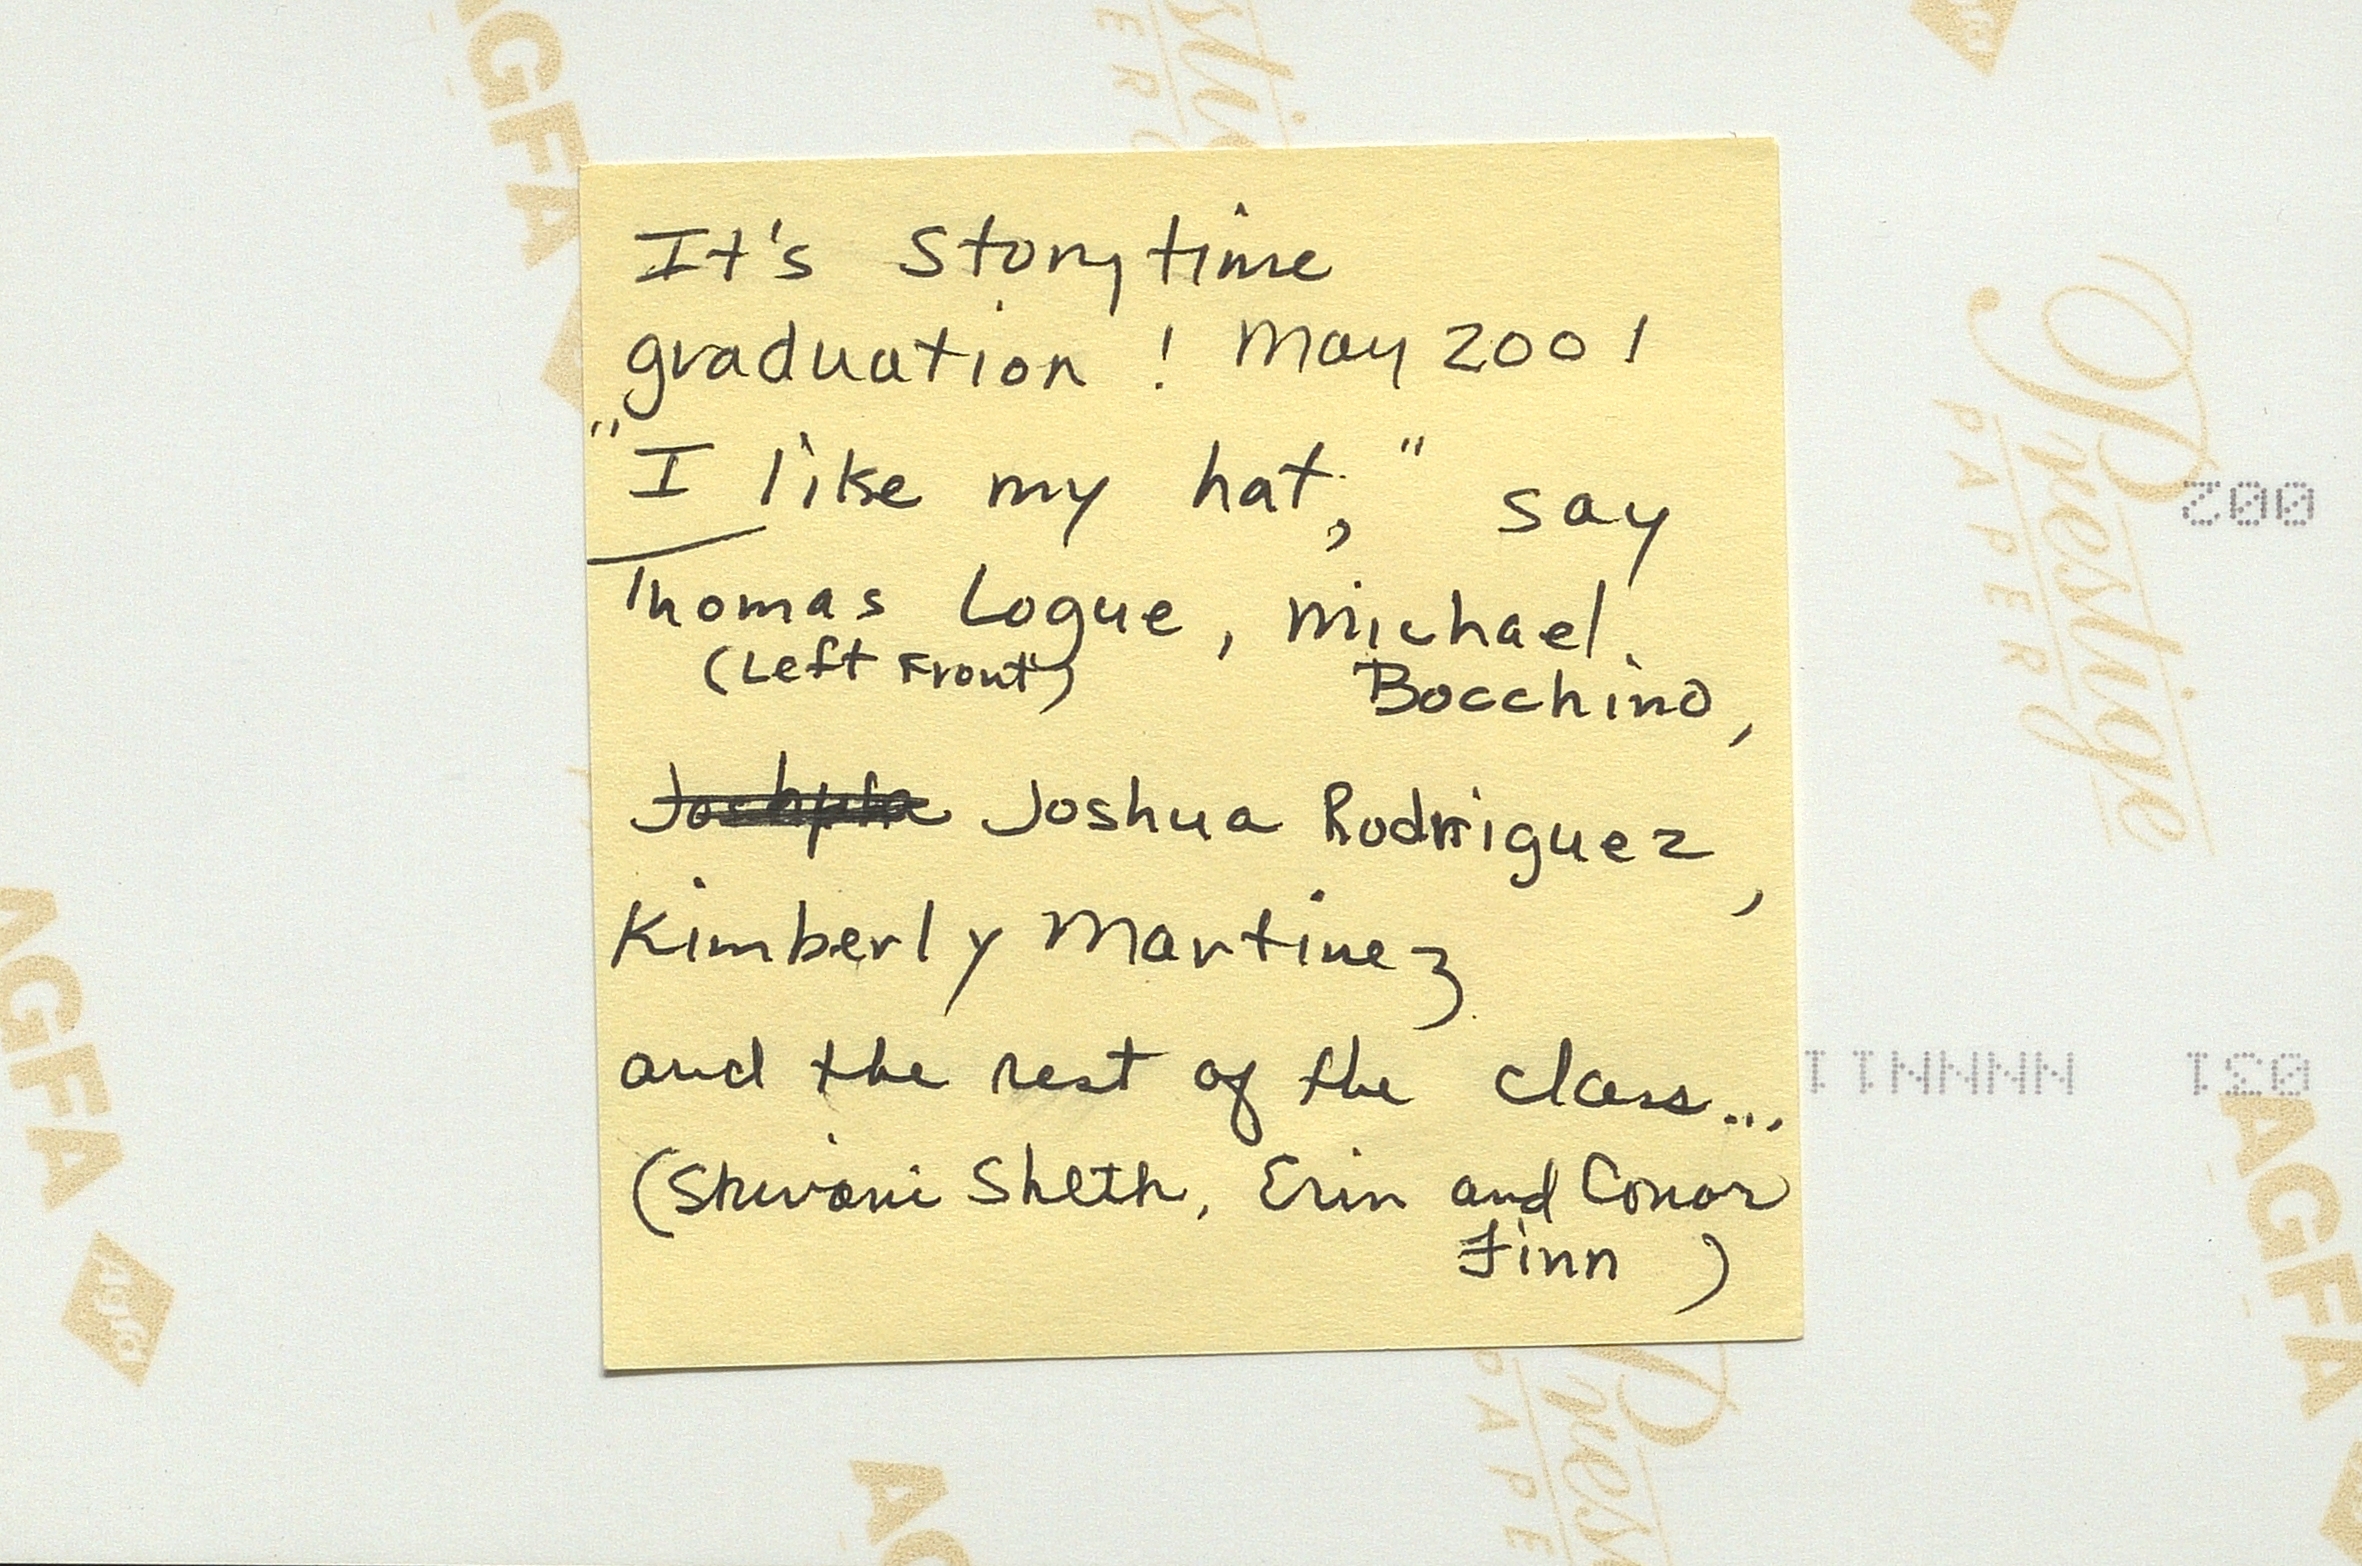 It's Storytime
graduation! May 2001
"I like my hat," say
Thomas Logue, Michael
(Left Front) Bocchino,
Joshua Rodriguez,
Kimberly Martinez
and the rest of the class...
(Shivani Sheth, Erin and Conor
Finn)
AGFA
Prestige
PAPER
002
031 NNNN11
AGFA
Agfa
AGFA